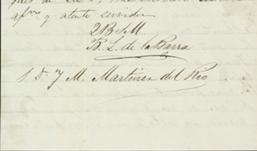 afmo y atento servidor
2 B S M
B. L. de la Barra
S. D. J. M. Martinez del Rio